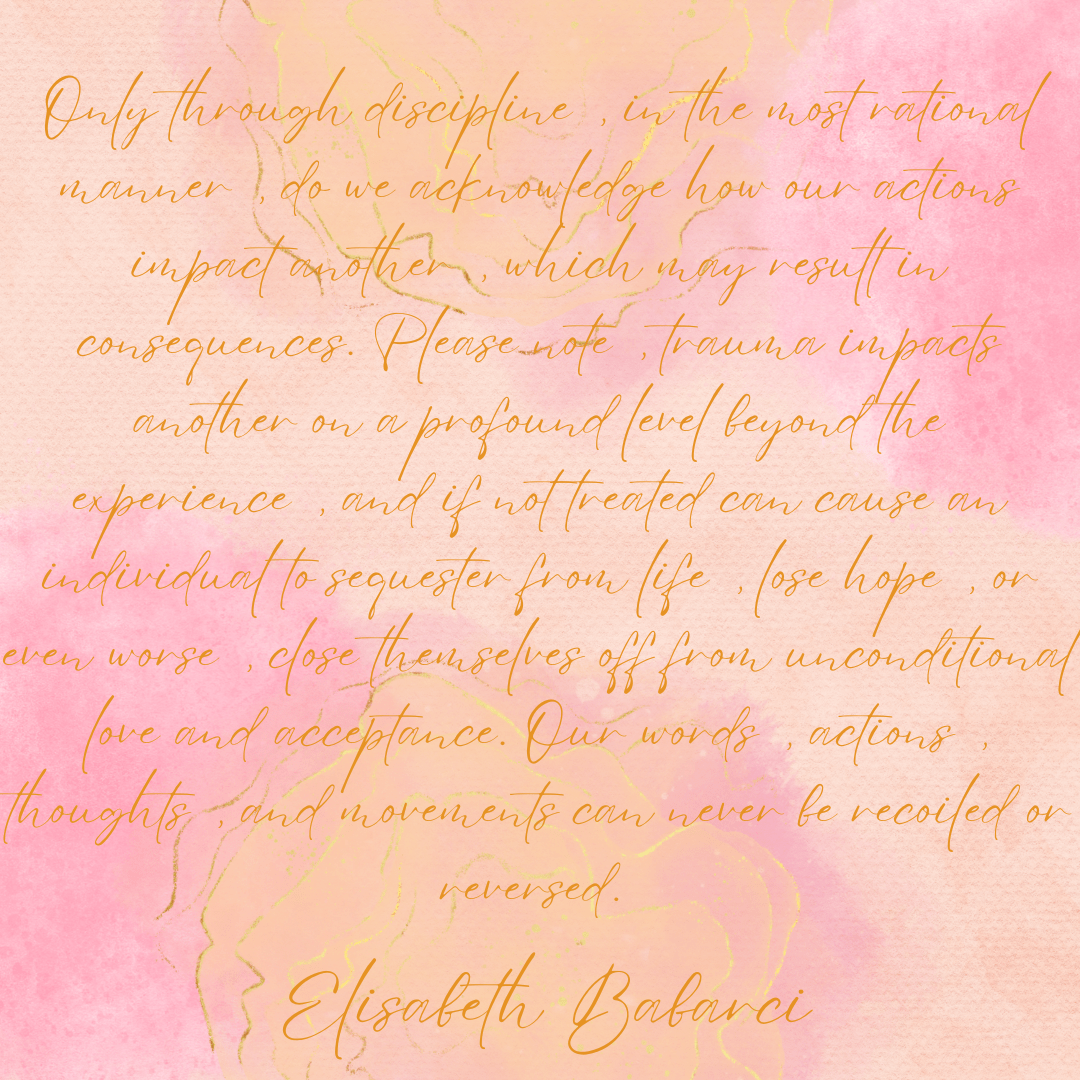 Only through discipline , in the most rational
manner , do we acknowledge how our actions
impact another , which may result in
consequences. Please note , trauma impacts
another on a profound level beyond the
experience , and if not treated can cause an
individual to sequester from life , lose hope , or
even worse , close themselves off from unconditional
love and acceptance. Our words , actions ,
thoughts , and movements can never be recoiled or
reversed.
Elisabeth Babarci